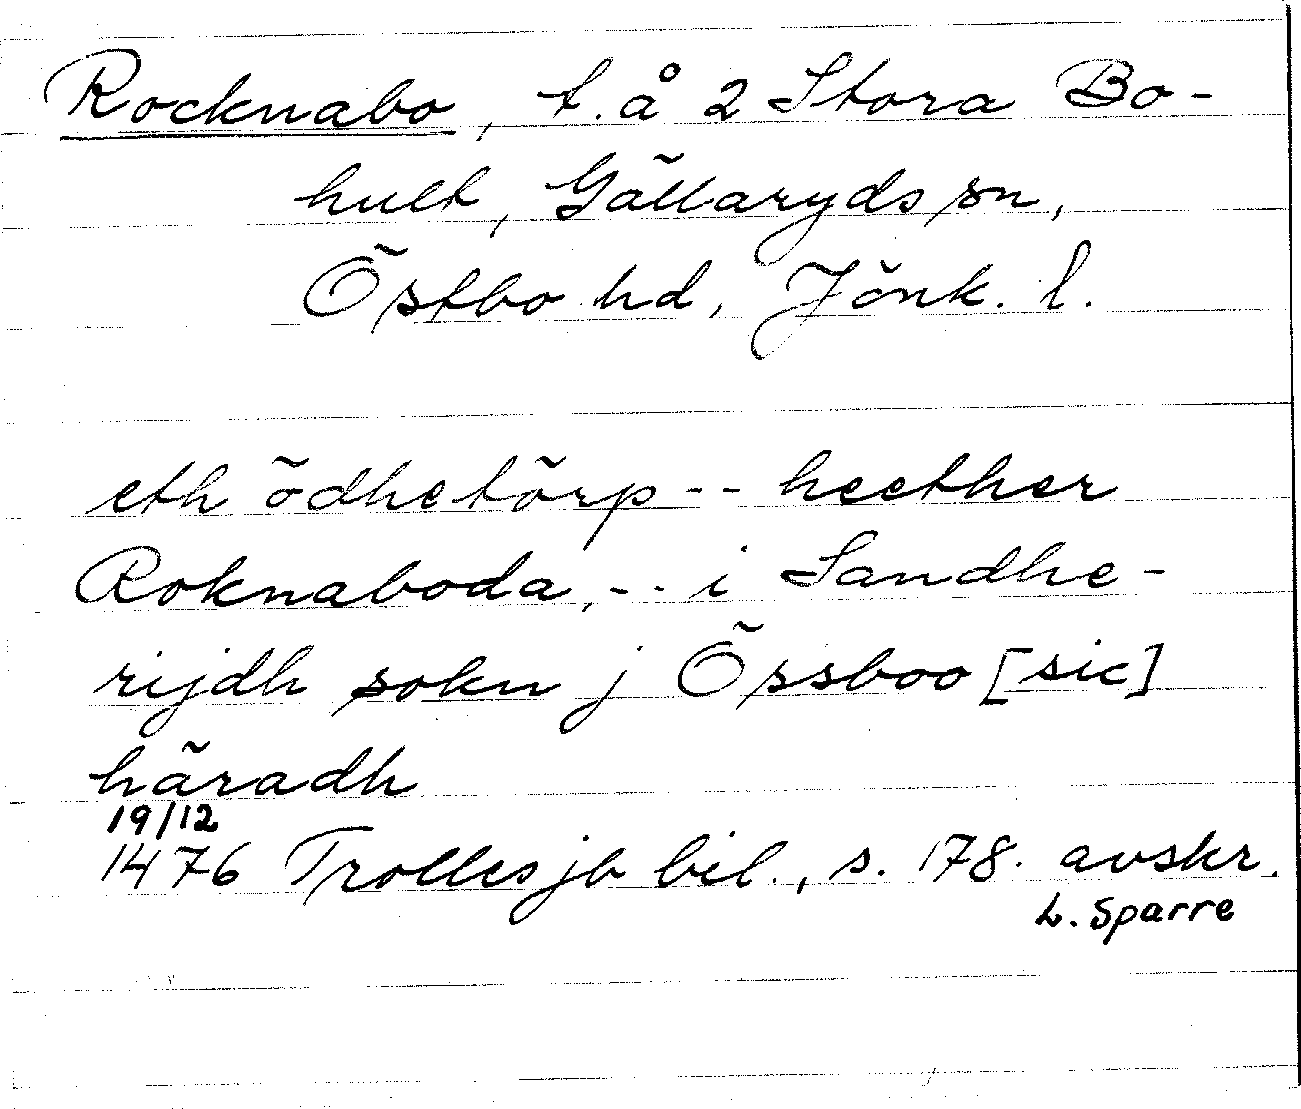 Rocknabo, t. å 2 Stora Bo-
hult, Gällaryds sn,
Östbo hd, Jönk. l.
eth ödhetörp -- heether
Roknaboda, -- i Sandhe-
rijdh sokn j Össboo [sic]
häradh
19/12
1476 Trolles jb bil., s. 178. avskr.
L. Sparre